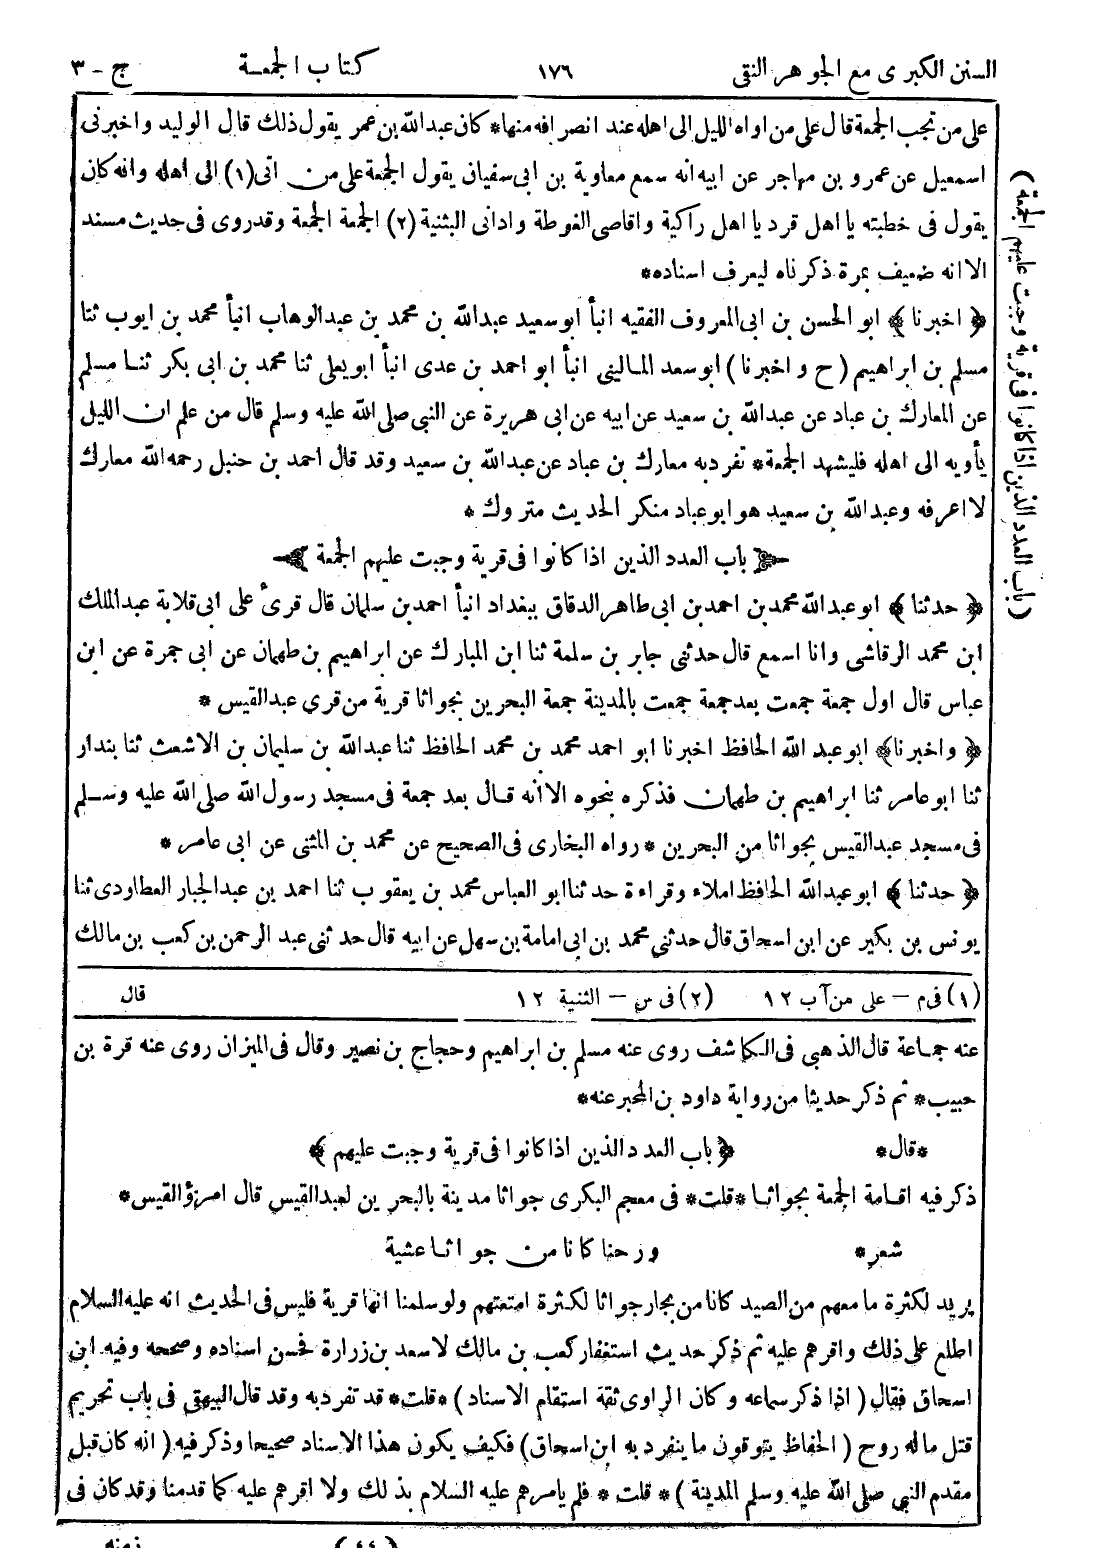 السنن الكبرى مع الجوهر النقى ١٧٦ كتاب الجمعة ج - ٣
على من تجب الجمعة قال على من اواه الليل الى اهله عند انصرافه منها* كان عبدالله بن عمر يقول ذلك قال الوليد واخبرنى
اسمعيل عن عمرو بن مهاجر عن ابيه انه سمع معاوية بن ابى سفيان يقول الجمعة على من اتى (١) الى اهله وانه كان
يقول فى خطبته يا اهل قرد يا اهل راكية واقاصى الغوطة وادانى البثنية (٢) الجمعة الجمعة وقدروى فى حديث مسند
الا انه ضعيف بمرة ذكرناه ليعرف اسناده*
﴿ اخبرنا ﴾ ابو الحسن بن ابى المعروف الفقيه انبأ ابوسعيد عبدالله بن محمد بن عبدالوهاب انبأ محمد بن ايوب ثنا
مسلم بن ابراهيم (ح واخبرنا) ابوسعد المالينى انبأ ابو احمد بن عدى انبأ ابويعلى ثنا محمد بن ابى بكر ثنا مسلم
عن المعارك بن عباد عن عبدالله بن سعيد عن ابيه عن ابى هريرة عن النبى صلى الله عليه وسلم قال من علم ان الليل
يأويه الى اهله فليشهد الجمعة* تفرد به معارك بن عباد عن عبدالله بن سعيد وقد قال احمد بن حنبل رحمه الله معارك
لا اعرفه وعبدالله بن سعيد هو ابوعباد منكر الحديث متروك *
﴿ باب العدد الذين اذا كانوا فى قرية وجبت عليهم الجمعة ﴾
﴿ حدثنا ﴾ ابوعبدالله محمد بن احمد بن ابى طاهر الدقاق ببغداد انبأ احمد بن سلمان قال قرئ على ابى قلابة عبدالملك
ابن محمد الرقاشى وانا اسمع قال حدثنى جابر بن سلمة ثنا ابن المبارك عن ابراهيم بن طهمان عن ابى جمرة عن ابن
عباس قال اول جمعة جمعت بعد جمعة جمعت بالمدينة جمعة البحرين بجواثا قرية من قرى عبدالقيس *
﴿ واخبرنا ﴾ ابوعبد الله الحافظ اخبرنا ابو احمد محمد بن محمد الحافظ ثنا عبدالله بن سليمان بن الاشعث ثنا بندار
ثنا ابوعامر ثنا ابراهيم بن طهمان فذكره بنحوه الا انه قال بعد جمعة فى مسجد رسول الله صلى الله عليه وسلم
فى مسجد عبدالقيس بجواثا من البحرين * رواه البخارى فى الصحيح عن محمد بن المثنى عن ابى عامر *
﴿ حدثنا ﴾ ابوعبدالله الحافظ املاء وقراءة حدثنا ابو العباس محمد بن يعقوب ثنا احمد بن عبدالجبار العطاردى ثنا
يونس بن بكير عن ابن اسحاق قال حدثنى محمد بن ابى امامة بن سهل عن ابيه قال حدثنى عبد الرحمن بن كعب بن مالك
قال
(باب العدد الذين اذا كانوا فى قرية وجبت عليهم الجمعة)
(١) فى م - على من آب ١٢ (٢) فى س - الثنية ١٢
عنه جماعة قال الذهبى فى الكاشف روى عنه مسلم بن ابراهيم وحجاج بن نصير وقال فى الميزان روى عنه قرة بن
حبيب* ثم ذكر حديثا من رواية داود بن المحبر عنه*
*قال* ﴿ باب العدد الذين اذا كانوا فى قرية وجبت عليهم ﴾
ذكر فيه اقامة الجمعة بجواثا *قلت* فى معجم البكرى جواثا مدينة بالبحرين لعبدالقيس قال امرؤ القيس*
شعر* ورحنا كانا من جواثا عشية
يريد لكثرة ما معهم من الصيد كانا من بجار جواثا لكثرة امتعتهم ولو سلمنا انها قرية فليس فى الحديث انه عليه السلام
اطلع على ذلك واقرهم عليه ثم ذكر حديث استغفار كعب بن مالك لاسعد بن زرارة فحسن اسناده وصححه وفيه ابن
اسحاق فقال (اذا ذكر سماعه وكان الراوى ثقة استقام الاسناد) *قلت* قد تفرد به وقد قال البيهقى فى باب تحريم
قتل ماله روح (الحفاظ يتوقون ما ينفرد به ابن اسحاق) فكيف يكون هذا الاسناد صحيحا وذكر فيه (انه كان قبل
مقدم النبى صلى الله عليه وسلم المدينة)* قلت * فلم يامرهم عليه السلام بذلك ولا اقرهم عليه كما قدمنا وقد كان فى